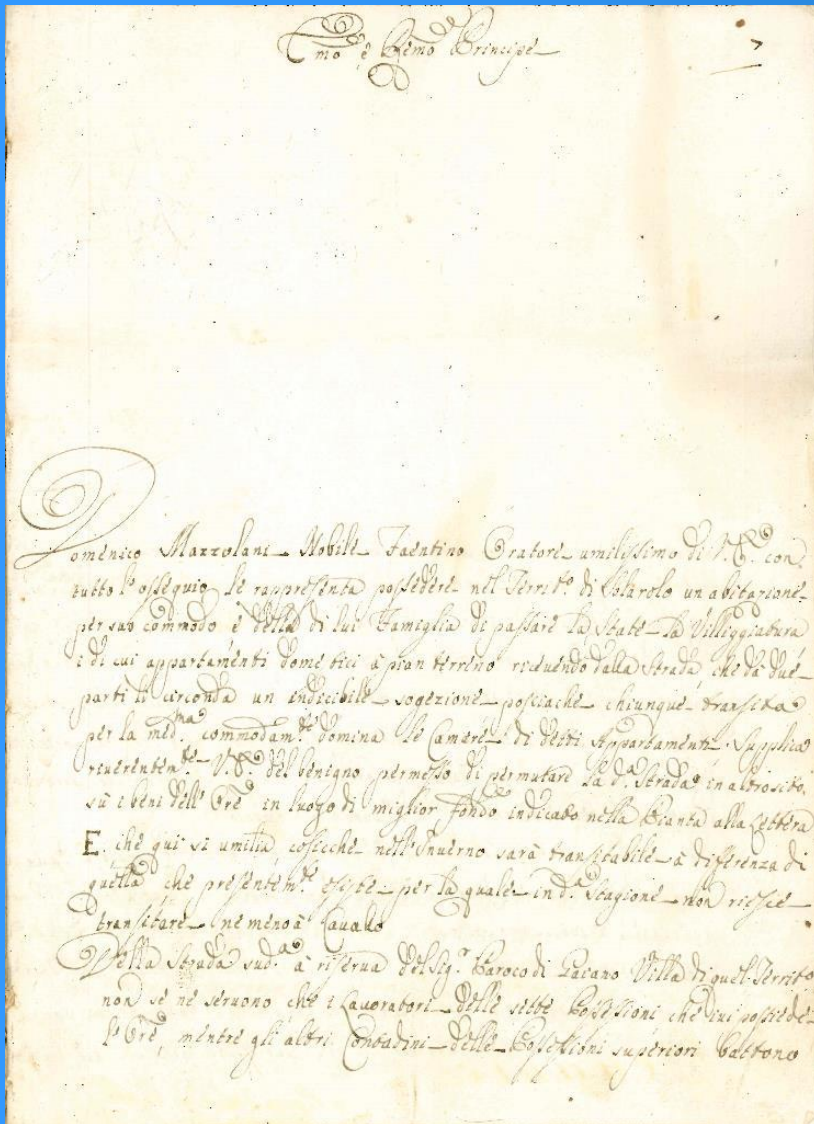 Emo, e Remo Principe
7
Domenico Mazzolani Nobile Faentino Oratore umilissimo di V. E. con
tutto l'ossequio le rappresenta possedere nel Territ.o di Solarolo un abitazione
per suo commodo e della di lui Famiglia di passare la State la Villeggiatura
i di cui appartamenti domestici à pian terreno ricevendo dalla Strada, che da due
parti li circonda un indecibile sogezione posciache chiunque transita
per la med.ma commodam.te domina le Camere di detti Appartamenti Supplica
riverentem.te V. E. del benigno permesso di permutare la d.a Strada in altro sito,
sù i beni dell'Ore in luogo di miglior fondo indicato nella Pianta alla Lettera
E. che qui si umilia, cosicche nell'Inverno sarà transitabile à differenza di
quella che presentem.te esiste per la quale in d.a Stagione non riesce
transitare ne meno à Cavallo
Della Strada sud.a à riserva del Sig.r Paroco di Gaiano Villa di quel Territ.o
non se ne servono che i Lavoratori delle sette Possessioni che ivi possiede
l'Ore, mentre gli altri Contadini delle Possessioni superiori battono